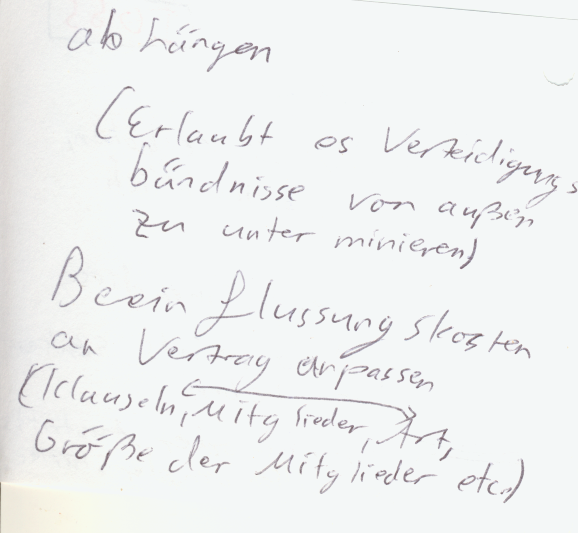 abhängen
(Erlaubt es Verteidigungs
bündnisse von außen
zu unterminieren)
Beeinflussungskosten
an Vertrag anpassen
(Klauseln, Mitglieder, Art,
Größe der Mitglieder etc.)